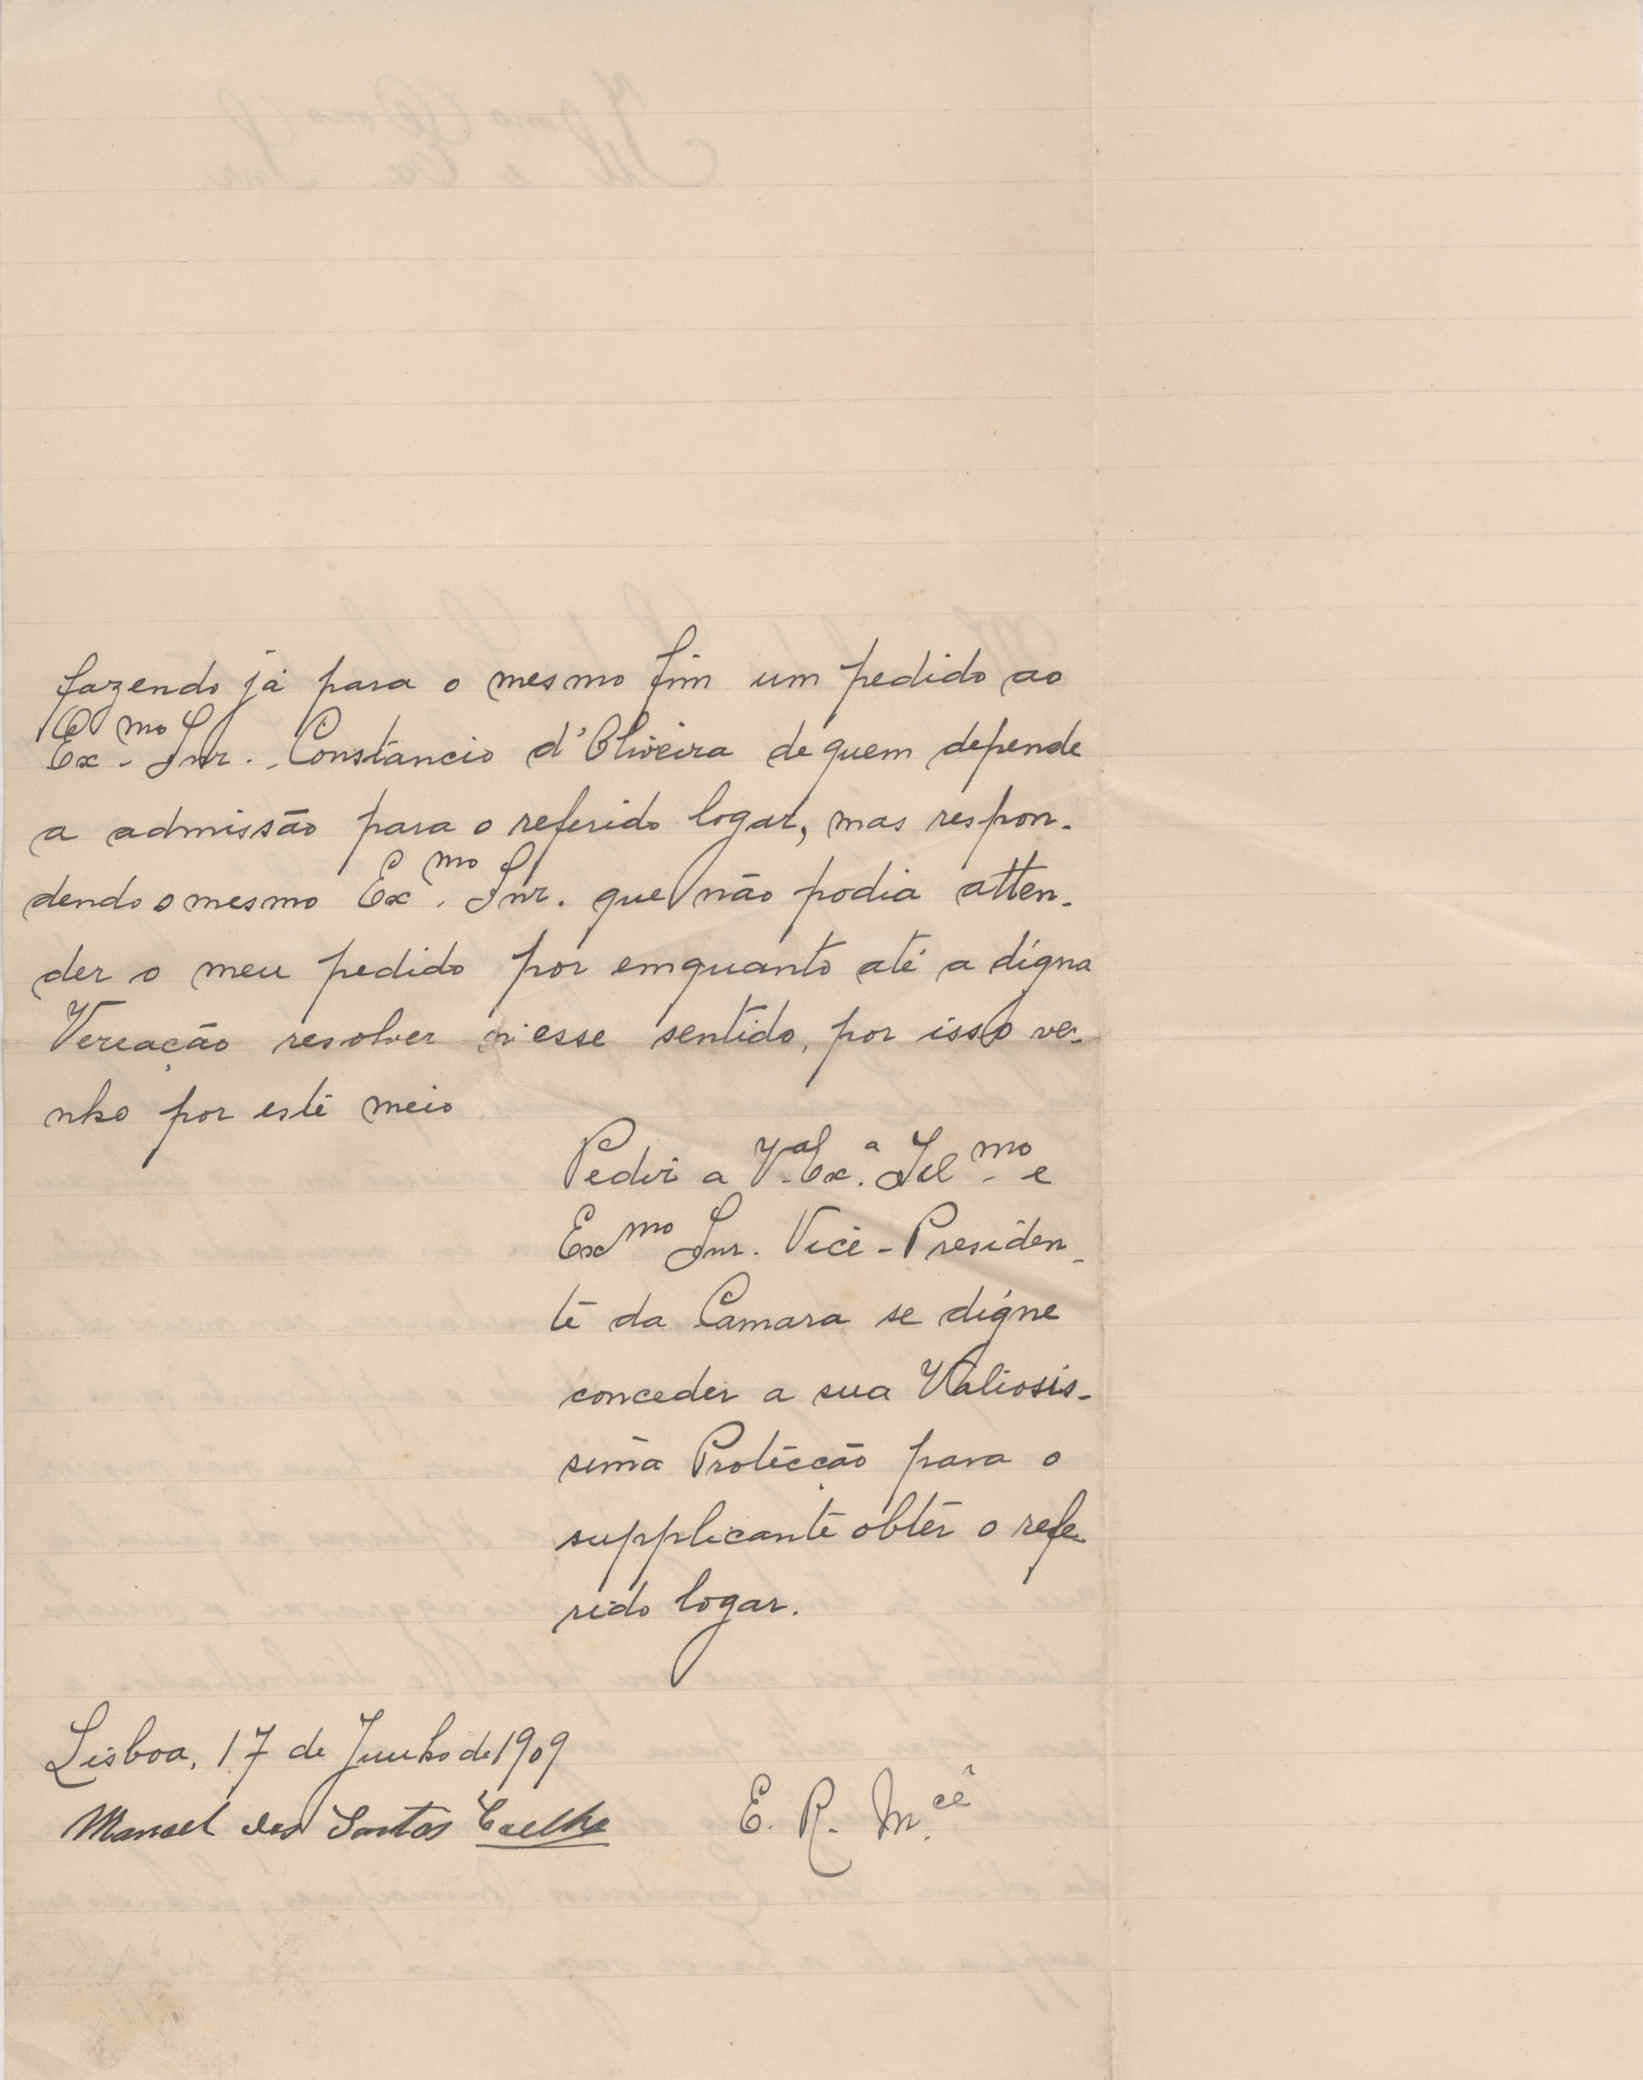 fazendo já para o mesmo fim um pedido ao
Ex.mo Snr. Constancio d'Oliveira de quem depende
a admissão para o referido logar, mas respon-
dendo o mesmo Ex.mo Snr. que não podia atten-
der o meu pedido por emquanto até a digna
Vereação resolver n'esse sentido, por isso ve-
nho por este meio
Pedir a V.a Ex.a Ill.mo e
Exmo Snr. Vice-Presiden-
te da Camara se digne
conceder a sua Valiosis-
sima Protecção para o
supplicante obter o refe
rido logar.
Lisboa, 17 de Junho de 1909
Manoel dos Santos Coelho
E. R. M.cê